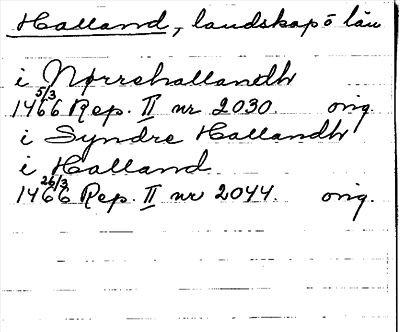 Halland, landskap o län
i Nørrehallandh
1466 5/3 Rep. II nr 2030. orig.
i Syndre Hallandh
i Halland
1466 26/3 Rep. II nr 2044. orig.